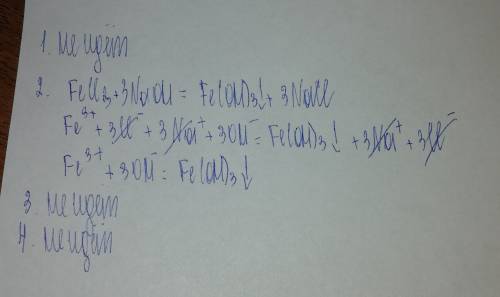 1. Не идёт
2. FeCl₃+3NaOH = Fe(OH)₃↓+ 3NaCl
Fe³⁺ + 3Cl⁻ + 3Na⁺ + 3OH⁻ = Fe(OH)₃↓ + 3Na⁺ + 3Cl⁻
Fe³⁺ + 3OH⁻ = Fe(OH)₃↓
3. Не идёт
4. Не идёт